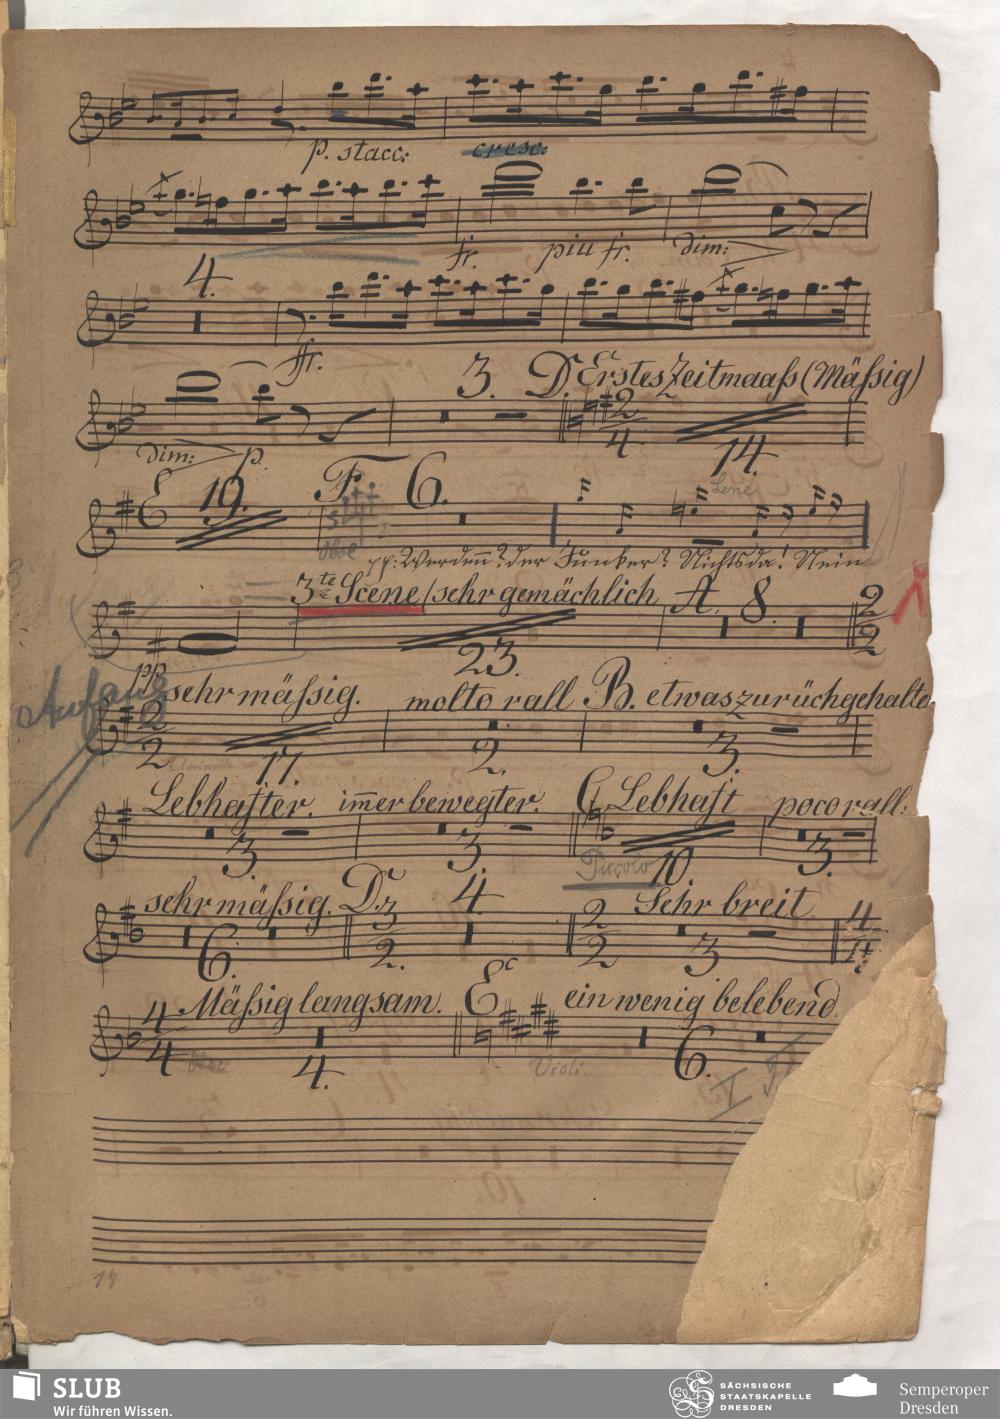 p. stacc: cresc:
fr. piu fr. dim:
4.
fr.
3. D. Erstes Zeitmaaſs (Mäſsig)
2
4
14.
dim: p.
E 19. F 6.
Oboe
Lene
pp: Werden? der Junker? Nichts da! Nein
3te Scene/sehr gemächlich A. 8.
2
2
23.
pp
Anfang
sehr mäſsig. molto rall B. etwas zurückgehalte
2
2
17. 2. 3.
Lebhafter. im̅er bewegter. C Lebhaft poco rall:
3. 3. Piccolo 10 3.
sehr mäſsig. D. 4. Sehr breit
3
2.
2
2
4
4
6. 3
Mäſsig langsam. E ein wenig belebend.
4
4
Oboe 4. Violi. 6.
14
SLUB
Wir führen Wissen.
SÄCHSISCHE
STAATSKAPELLE
DRESDEN
Semperoper
Dresden